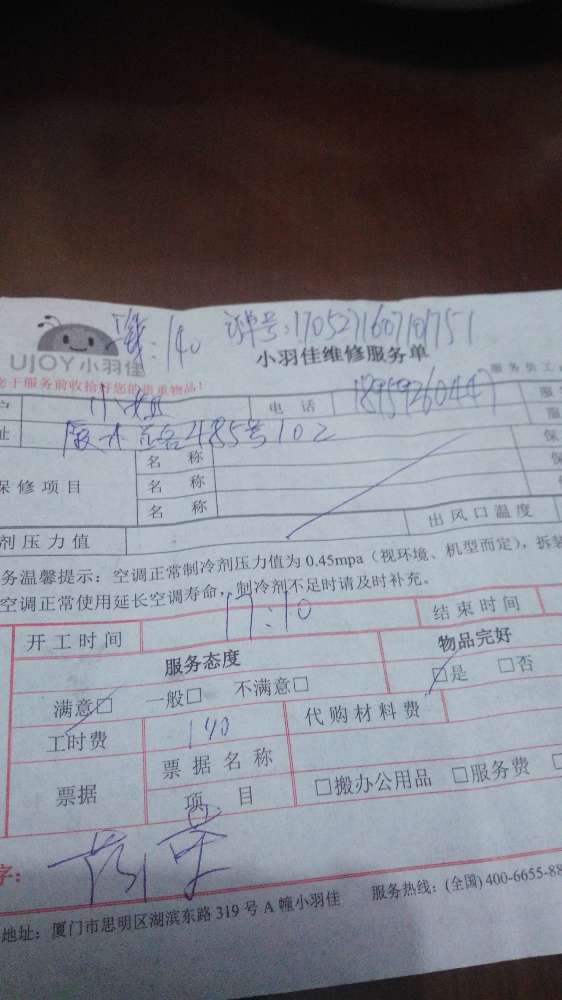 :140 单号:170527160710751
UJOY小羽佳
小羽佳维修服务单
您于服务前收拾好您的贵重物品!
服务员工
户 电话 18959260447
址 485号102
保修项目
名称
名称
名称
剂压力值 出风口温度
务温馨提示:空调正常制冷剂压力值为0.45mpa(视环境、机型而定),拆装
空调正常使用延长空调寿命,制冷剂不足时请及时补充。
开工时间 17:10 结束时间
服务态度 物品完好
满意□ 一般□ 不满意□ □是 □否
工时费 140 代购材料费
票据 票据名称
项目 □搬办公用品 □服务费
字:
地址:厦门市思明区湖滨东路319号A幢小羽佳 服务热线:(全国)400-6655-88